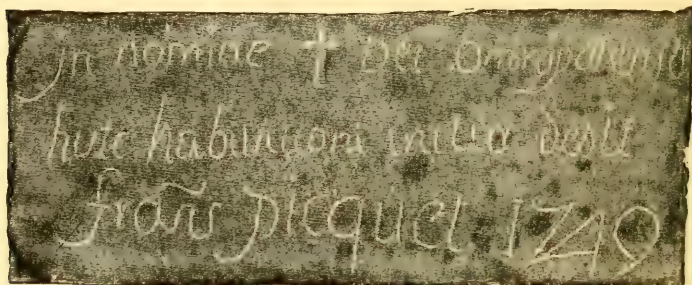 in nomine † Dei Omnipotentis
huic habitationi initia dedit
frans picquet 1749